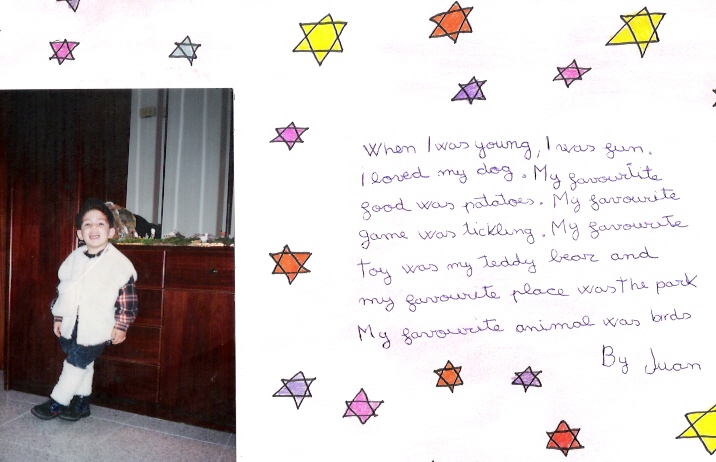 When I was young, I was fun.
I loved my dog. My favourtite
food was patatoes. My favourite
game was tickling. My favourite
toy was my teddy bear and
my favourite place was the park
My favourite animal was birds
By Juan